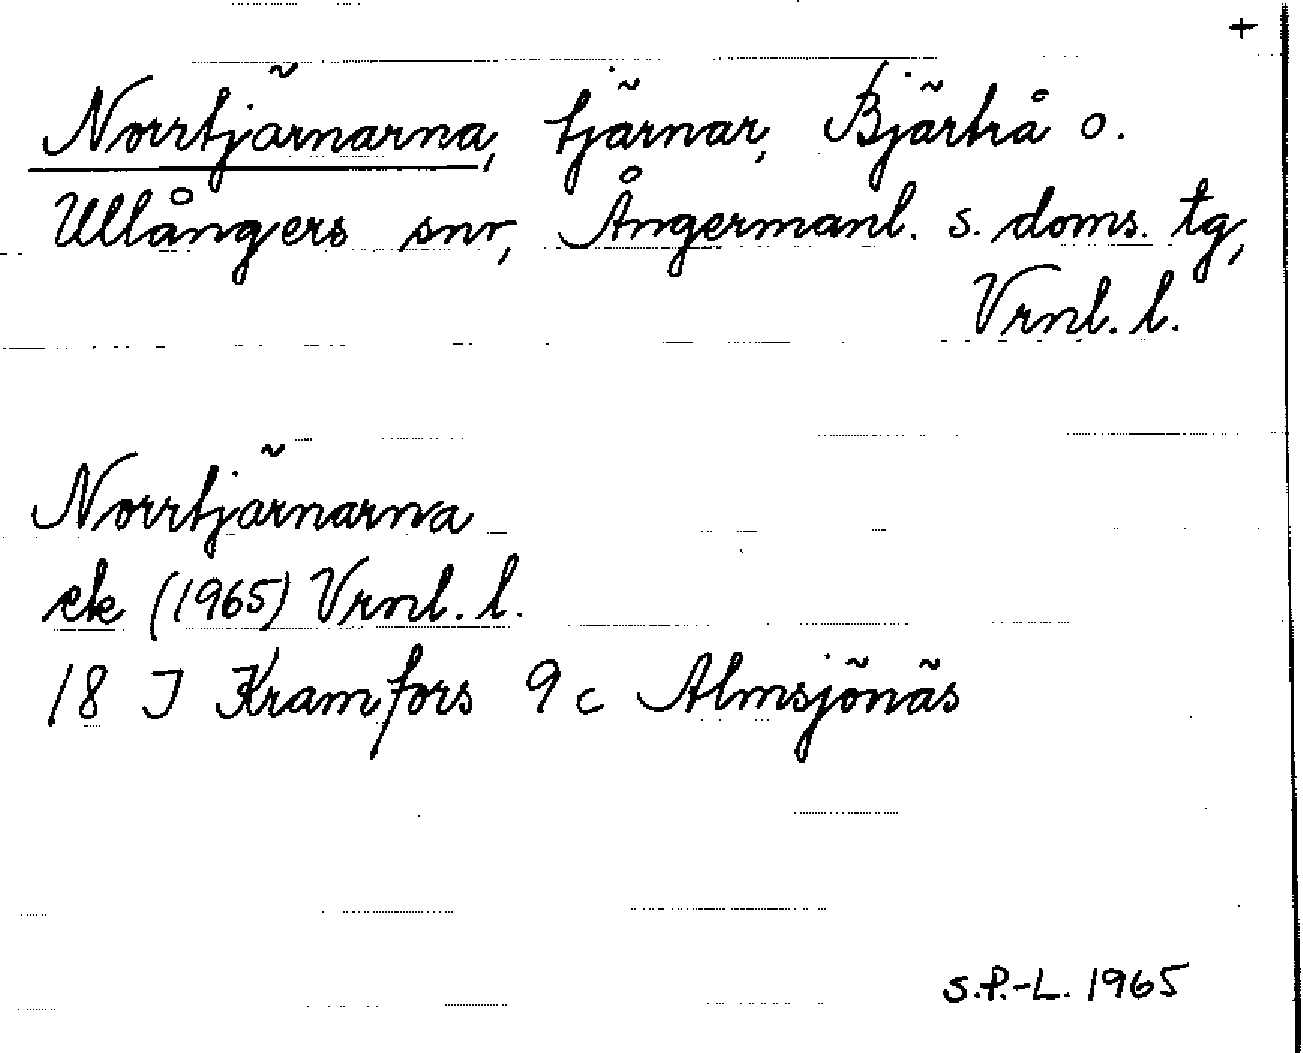 +
Norrtjärnarna, tjärnar, Bjärtrå o.
Ullångers snr, Ångermanl. s. doms. tg,
Vrnl. l.
Norrtjärnarna
ek (1965) Vrnl. l.
18 J Kramfors 9 c Almsjönäs
S.P.-L. 1965